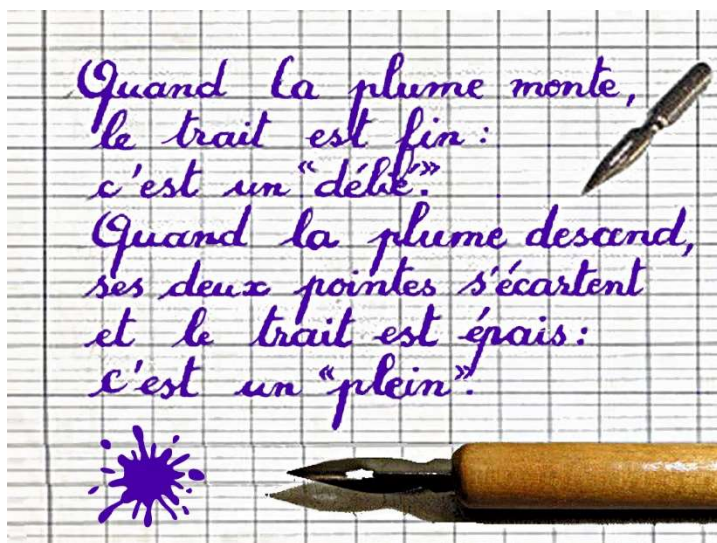 Quand la plume monte,
le trait est fin :
c'est un “délié”.
Quand la plume descend,
ses deux pointes s'écartent
et le trait est épais :
c'est un “plein”.